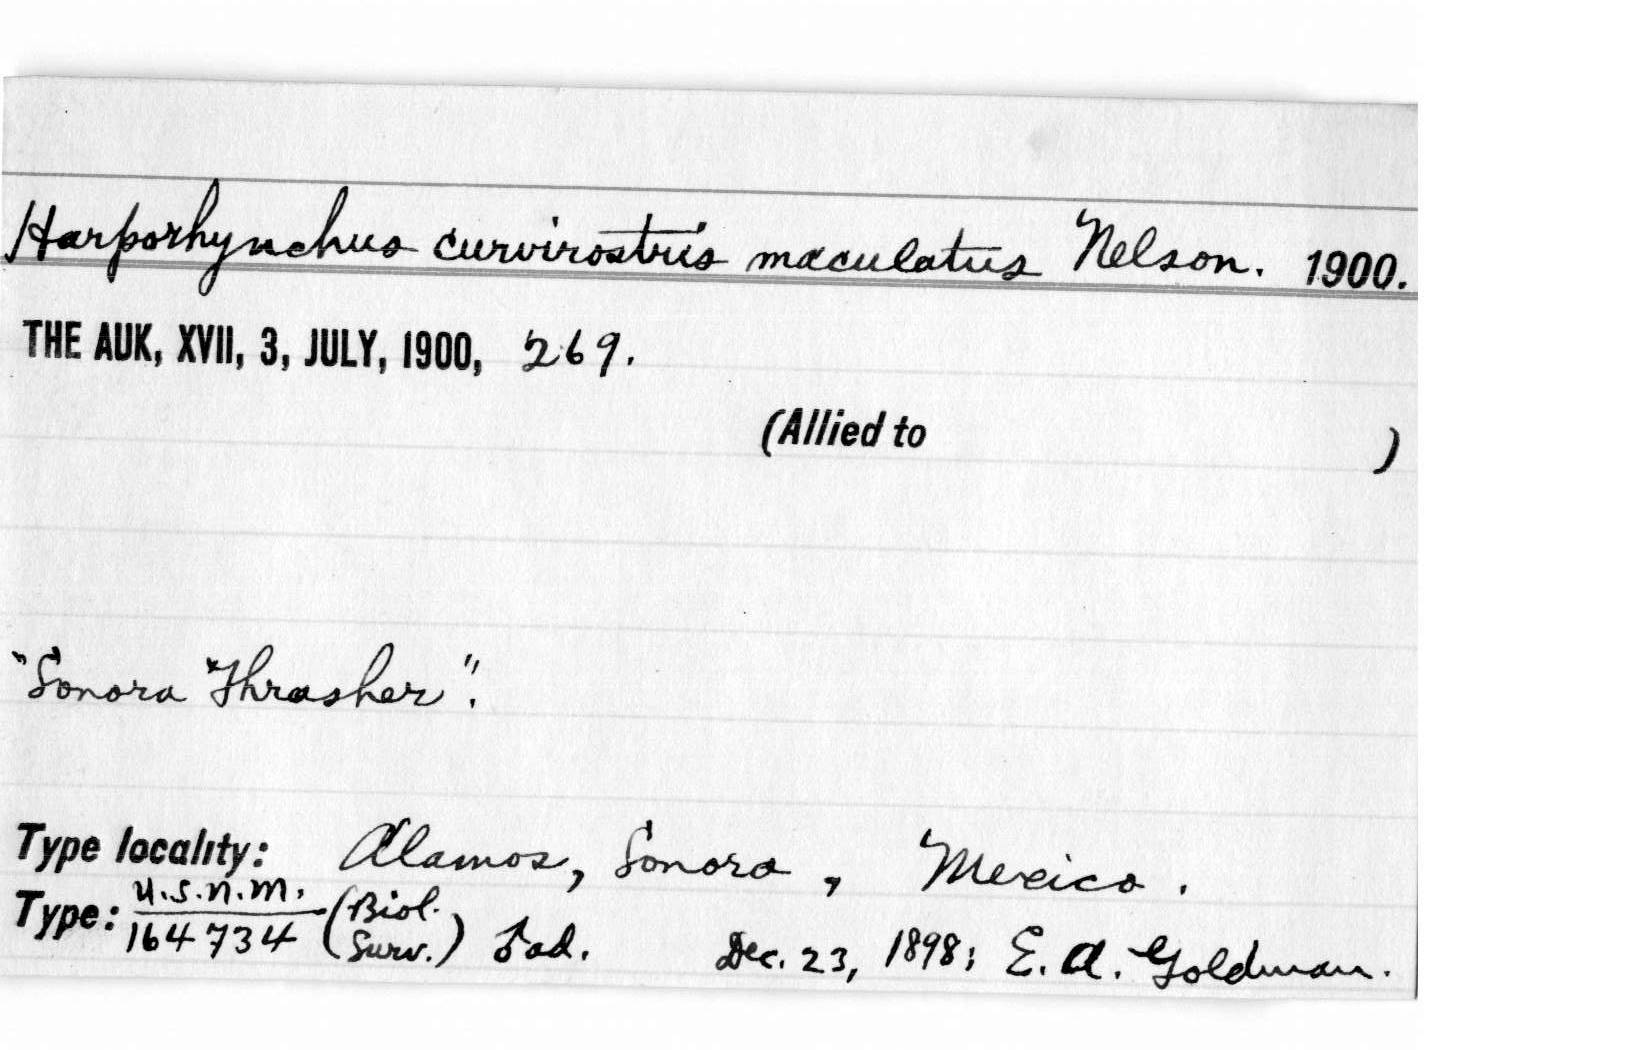 Harporhynchus curvirostris maculatus Nelson. 1900.
THE AUK, XVII, 3, JULY, 1900, 269.
(Allied to )
"Sonora Thrasher".
Type locality: Alamos, Sonora, Mexico.
Type: U.S.N.M. 164734 (Biol. Surv.) ad. Dec. 23, 1898; E. A. Goldman.